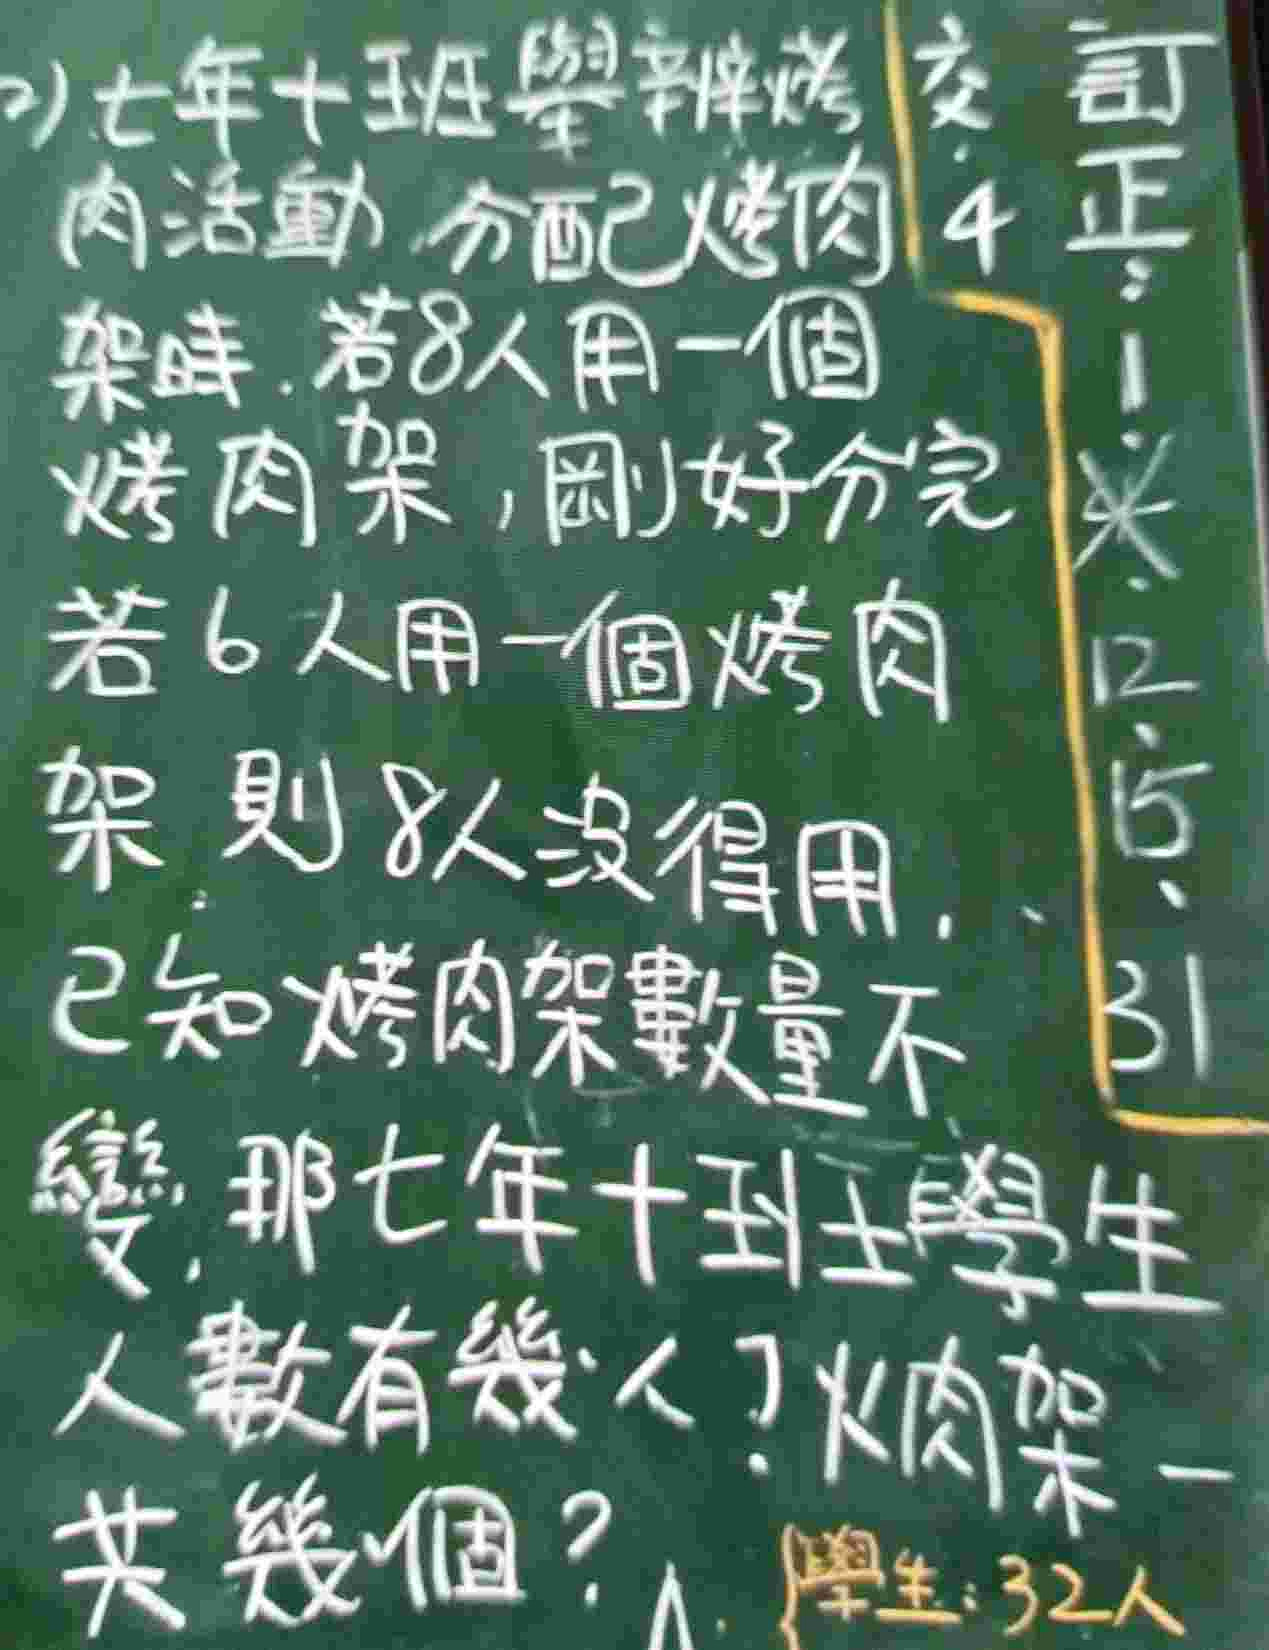 2) 七年十班舉辦烤
肉活動,分配烤肉
架時.若8人用一個
烤肉架,剛好分完
若6人用一個烤肉
架則8人沒得用.
已知烤肉架數量不
變,那七年十班學生
人數有幾人?肉架一
共幾個?
A. 學生:32人
交
4
訂
正
:
1
12
、
15
、
31